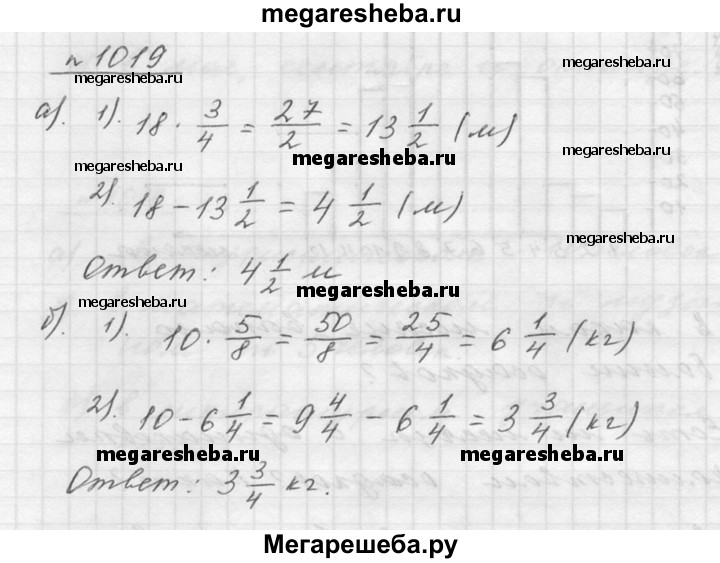 megaresheba.ru
№ 1019
megaresheba.ru megaresheba.ru
а). 1). 18 · 3/4 = 27/2 = 13 1/2 (м)
megaresheba.ru megaresheba.ru
2). 18 - 13 1/2 = 4 1/2 (м)
megaresheba.ru
Ответ: 4 1/2 м
megaresheba.ru megaresheba.ru
б). 1). 10 · 5/8 = 50/8 = 25/4 = 6 1/4 (кг)
2). 10 - 6 1/4 = 9 4/4 - 6 1/4 = 3 3/4 (кг)
megaresheba.ru megaresheba.ru
Ответ: 3 3/4 кг.
Мегарешеба.ру